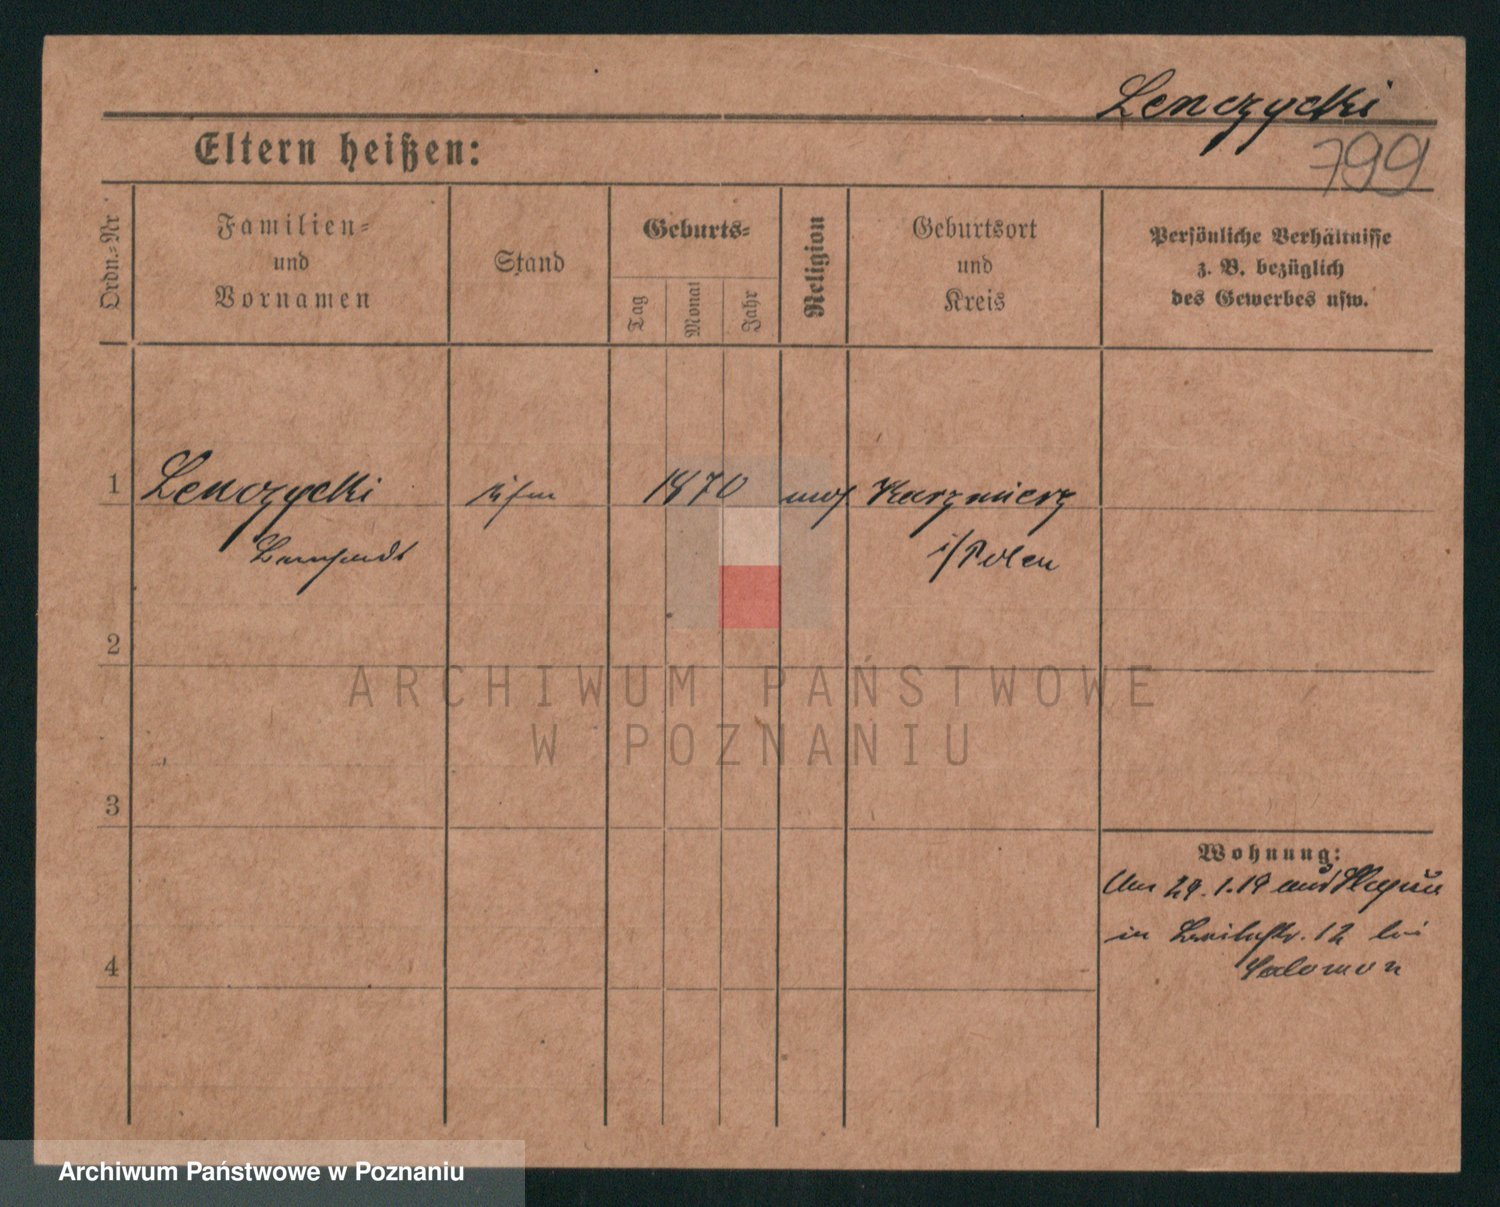 Lenczycki
799
Eltern heißen:
Ordn.-Nr
Familien-
und
Vornamen
Stand
Geburts-
Tag
Monat
Jahr
Religion
Geburtsort
und
Kreis
Persönliche Verhältnisse
z. B. bezüglich
des Gewerbes usw.
1
Lenczycki
1870
mos.
Kazmierz
i/Polen
2
ARCHIWUM PAŃSTWOWE
W POZNANIU
3
Wohnung:
Am 29.1.19 aus
in 12 bei
Salomon
4
Archiwum Państwowe w Poznaniu